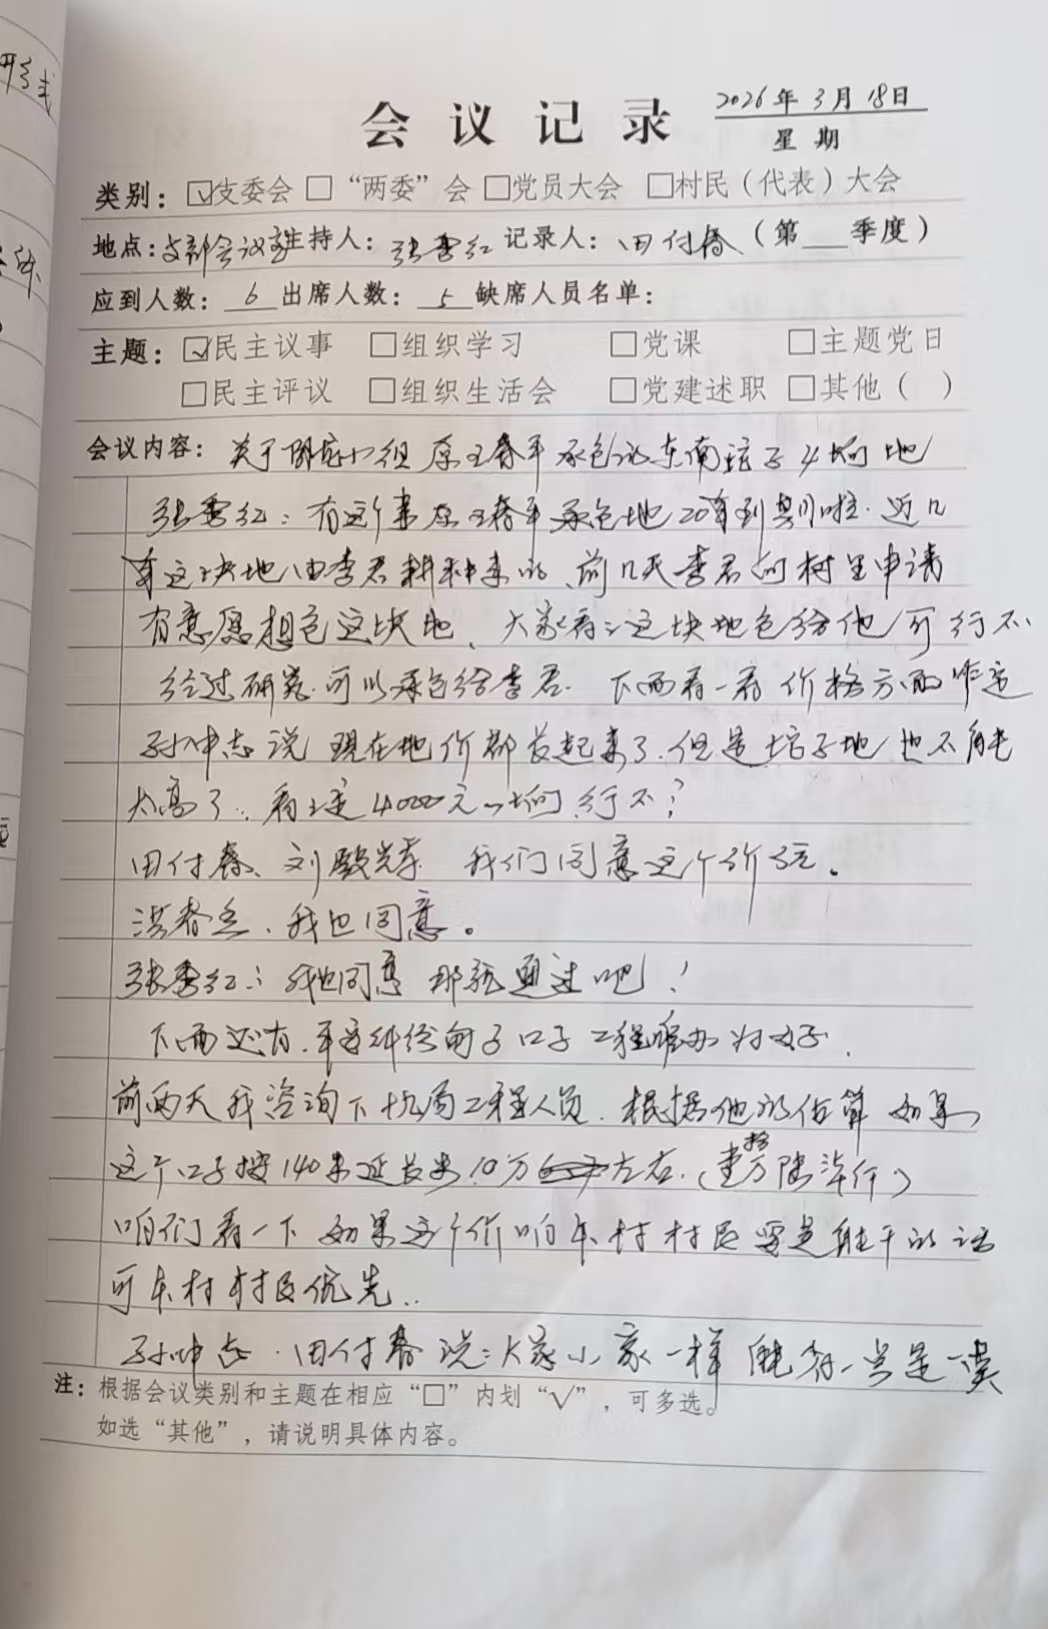 会议记录
2026年3月18日
星期
类别：☑支委会 □“两委”会 □党员大会 □村民（代表）大会
地点：支部会议室 主持人：张秀红 记录人：田付春（第 季度）
应到人数：6 出席人数：5 缺席人员名单：
主题：☑民主议事 □组织学习 □党课 □主题党日
□民主评议 □组织生活会 □党建述职 □其他（ ）
会议内容：关于 小组原王春平承包的东南培子4垧地
张秀红：有这个事原王春平承包地20年到期啦.近几
年这块地由李君耕种来的、前几天李君向村里申请
有意愿想包这块地、大家看看这块地包给他可行不
经过研究.可以承包给李君. 下面看一看价格方面咋定
孙中志说 现在地价都长起来了.但是培子地也不能
太高了.看看定4000元一垧行不？
田付春、刘 我们同意这个价钱。
洪春 、我也同意。
张秀红：我也同意 那就通过吧！
下面还有. 口子工程
前两天我咨询下 局工程人员.根据他的估算 如果
这个口子按140米延长米10万 左右.（
咱们看一下如果这个价咱本村村民要是能干的话
可本村村民优先..
孙中志.田付春说：大家小家一样 能 一点是一
注：根据会议类别和主题在相应“□”内划“√”，可多选。
如选“其他”，请说明具体内容。